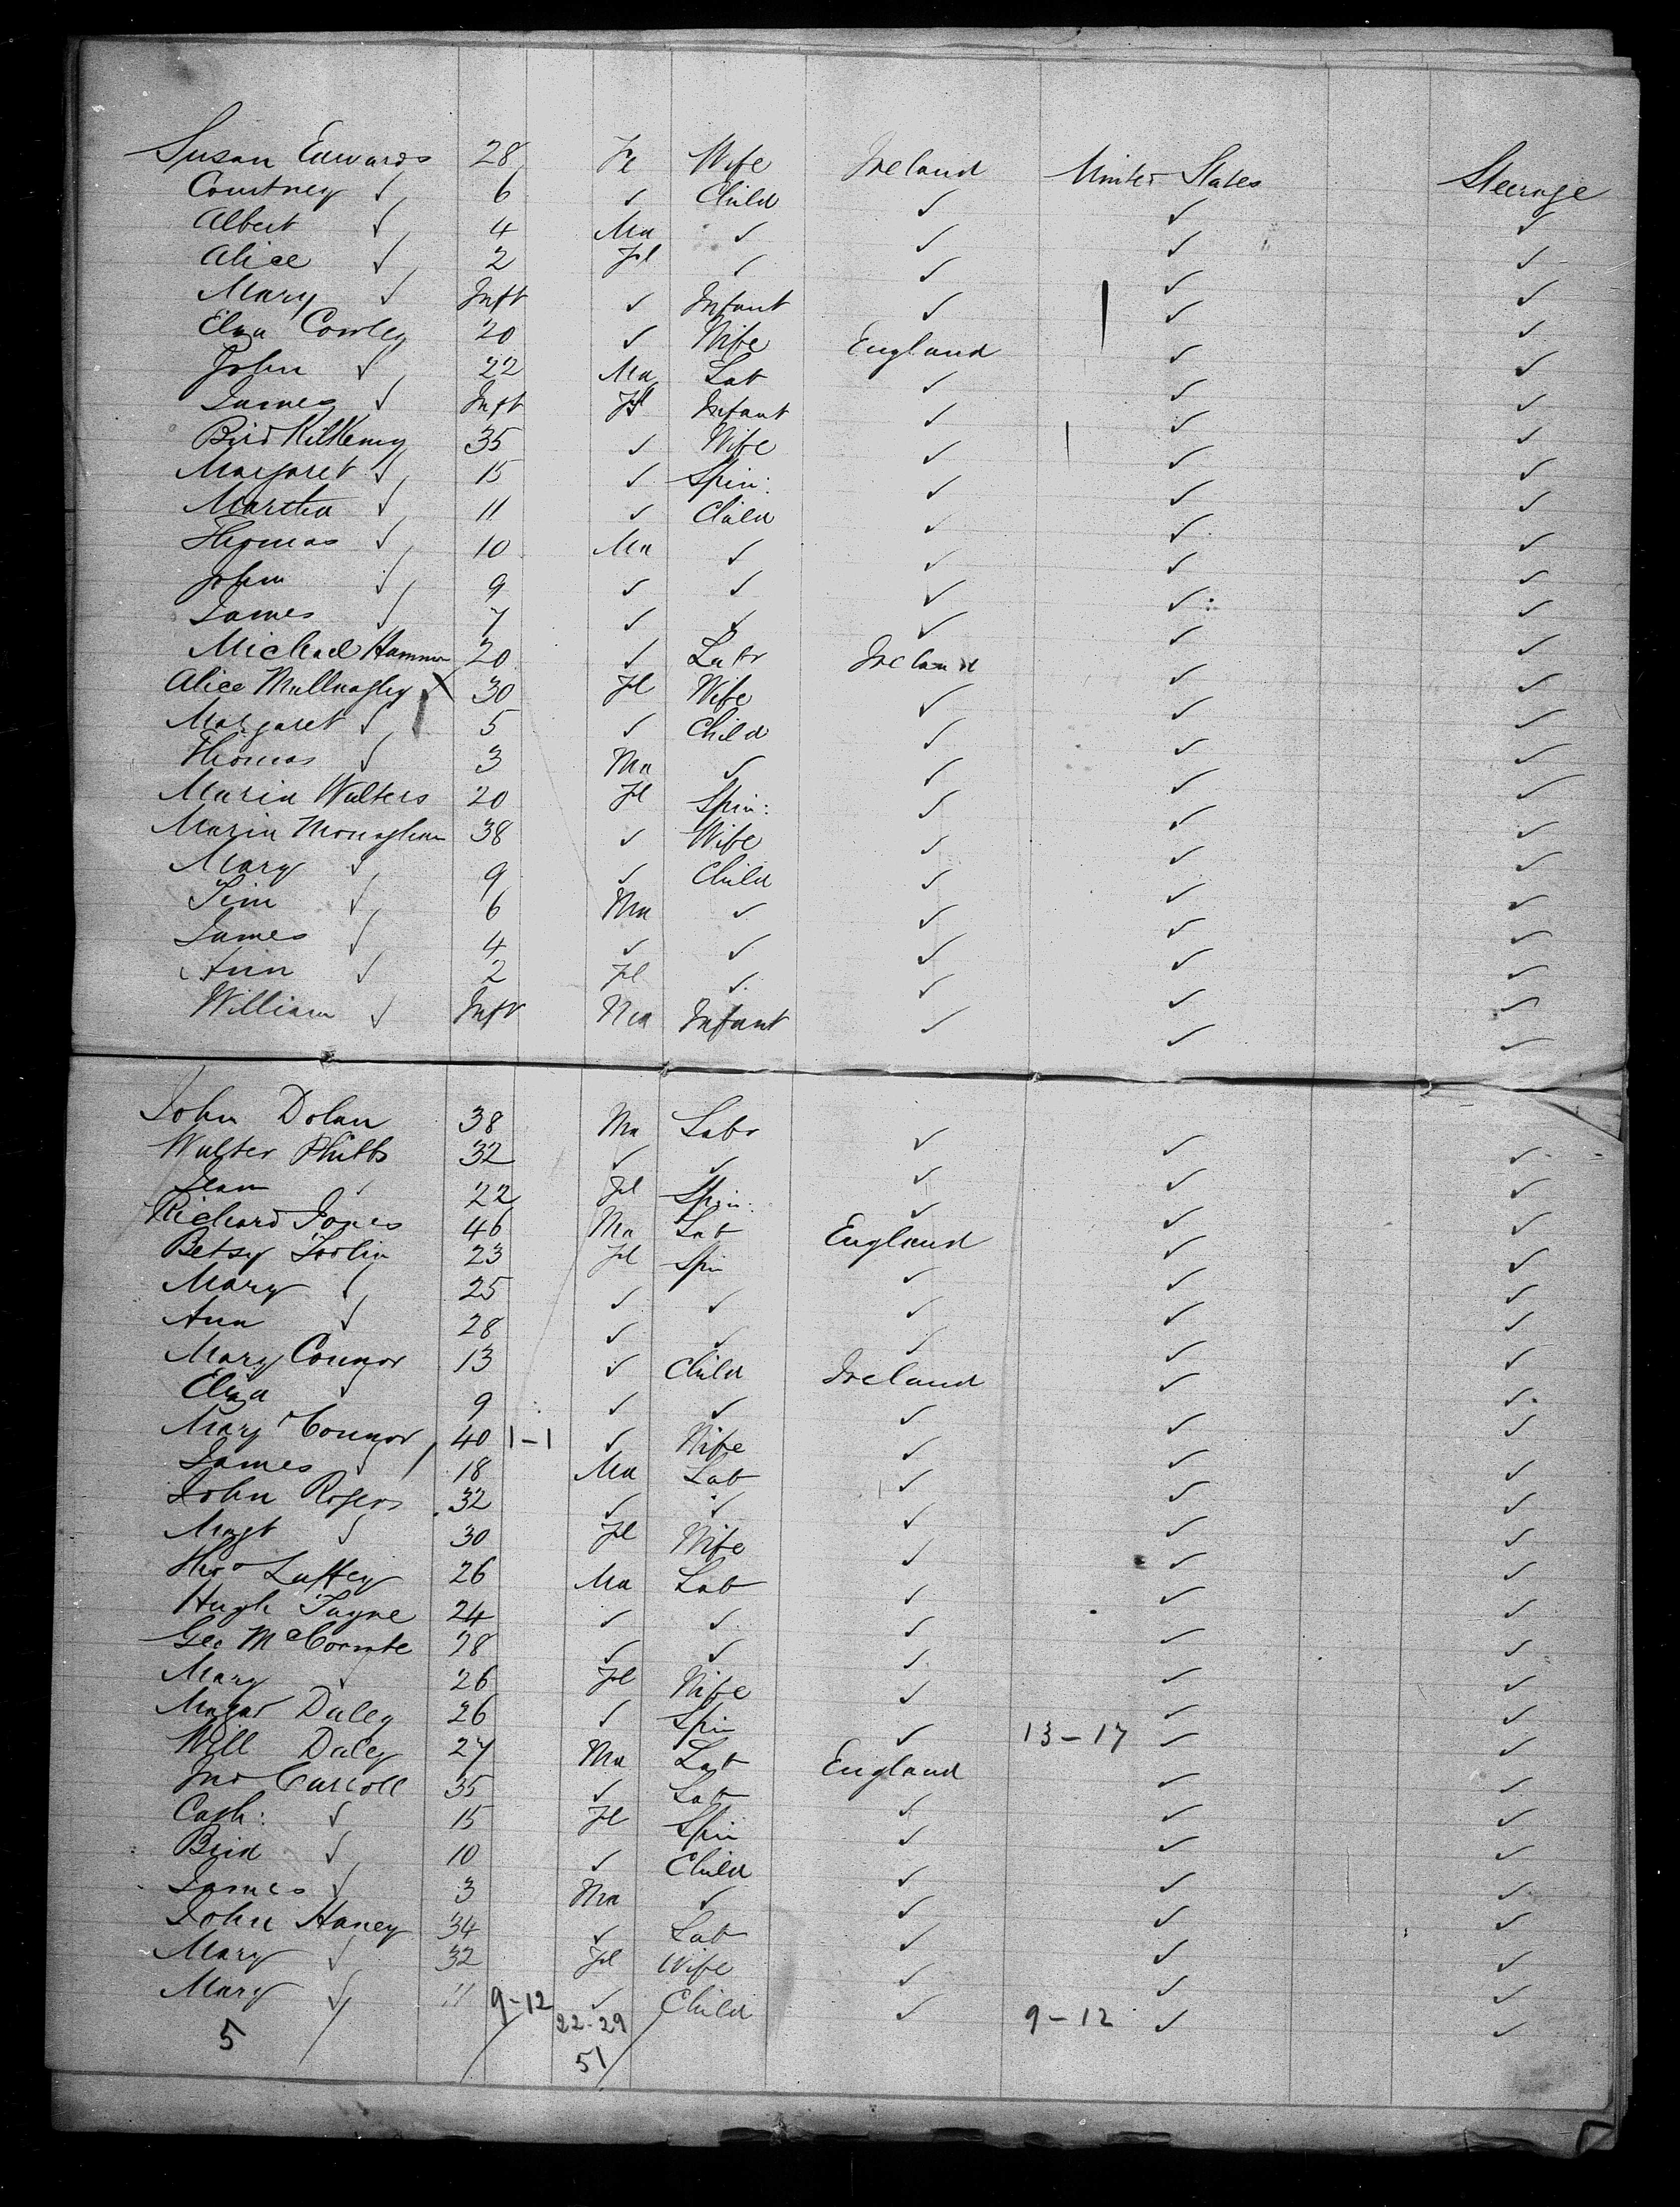 Susan Edwards 28 Fe Wife Ireland United States Steerage
Courtney ✓ 6 ✓ Child ✓ ✓ ✓
Albert ✓ 4 Ma ✓ ✓ ✓ ✓
Alice ✓ 2 Fl ✓ ✓ ✓ ✓
Mary ✓ Inft ✓ Infant ✓ ✓ ✓
Eliza Cowley 20 ✓ Wife England ✓ ✓
John ✓ 22 Ma Lab ✓ ✓ ✓
James ✓ Inft Fl Infant ✓ ✓ ✓
Bird Kilkenny 35 ✓ Wife ✓ ✓ ✓
Margaret ✓ 15 ✓ Spin: ✓ ✓ ✓
Martha ✓ 11 ✓ Child ✓ ✓ ✓
Thomas ✓ 10 Ma ✓ ✓ ✓ ✓
John ✓ 9 ✓ ✓ ✓ ✓ ✓
James ✓ 7 ✓ ✓ ✓ ✓ ✓
Michael 20 ✓ Labr Ireland ✓ ✓
Alice 30 Fl Wife ✓ ✓ ✓
Margaret ✓ 5 ✓ Child ✓ ✓ ✓
Thomas ✓ 3 Ma ✓ ✓ ✓ ✓
Maria Walters 20 Fl Spin: ✓ ✓ ✓
Maria Monaghan 38 ✓ Wife ✓ ✓ ✓
Mary ✓ 9 ✓ Child ✓ ✓ ✓
Tim ✓ 6 Ma ✓ ✓ ✓ ✓
James ✓ 4 ✓ ✓ ✓ ✓ ✓
Ann ✓ 2 Fl ✓ ✓ ✓ ✓
William ✓ Inft Ma Infant ✓ ✓ ✓
John Dolan 38 Ma Labr ✓ ✓ ✓
Walter Phibbs 32 ✓ ✓ ✓ ✓ ✓
✓ 22 Fl Spin: ✓ ✓ ✓
Richard Jones 46 Ma Lab England ✓ ✓
Betsy 23 Fl Spin ✓ ✓ ✓
Mary ✓ 25 ✓ ✓ ✓ ✓ ✓
Ann ✓ 28 ✓ ✓ ✓ ✓ ✓
Mary Connor 13 ✓ Child Ireland ✓ ✓
Eliza ✓ 9 ✓ ✓ ✓ ✓ ✓
Mary Connor 40 1-1 ✓ Wife ✓ ✓ ✓
James ✓ 18 Ma Lab ✓ ✓ ✓
John Rogers 32 ✓ ✓ ✓ ✓ ✓
Magt ✓ 30 Fl Wife ✓ ✓ ✓
Thos Laffey 26 Ma Lab ✓ ✓ ✓
Hugh 24 ✓ ✓ ✓ ✓ ✓
Geo 28 ✓ ✓ ✓ ✓ ✓
Mary ✓ 26 Fl Wife ✓ ✓ ✓
Daley 26 ✓ Spin ✓ 13-17 ✓ ✓
Will Daley 27 Ma Lab England ✓ ✓
Jno Carroll 35 ✓ Lab ✓ ✓ ✓
Cath: ✓ 15 Fl Spin ✓ ✓ ✓
Bird ✓ 10 ✓ Child ✓ ✓ ✓
James ✓ 3 Ma ✓ ✓ ✓ ✓
John Haney 34 ✓ Lab ✓ ✓ ✓
Mary ✓ 32 Fl Wife ✓ ✓ ✓
Mary ✓ 11 9-12 ✓ Child ✓ 9-12 ✓ ✓
5 22-29
51